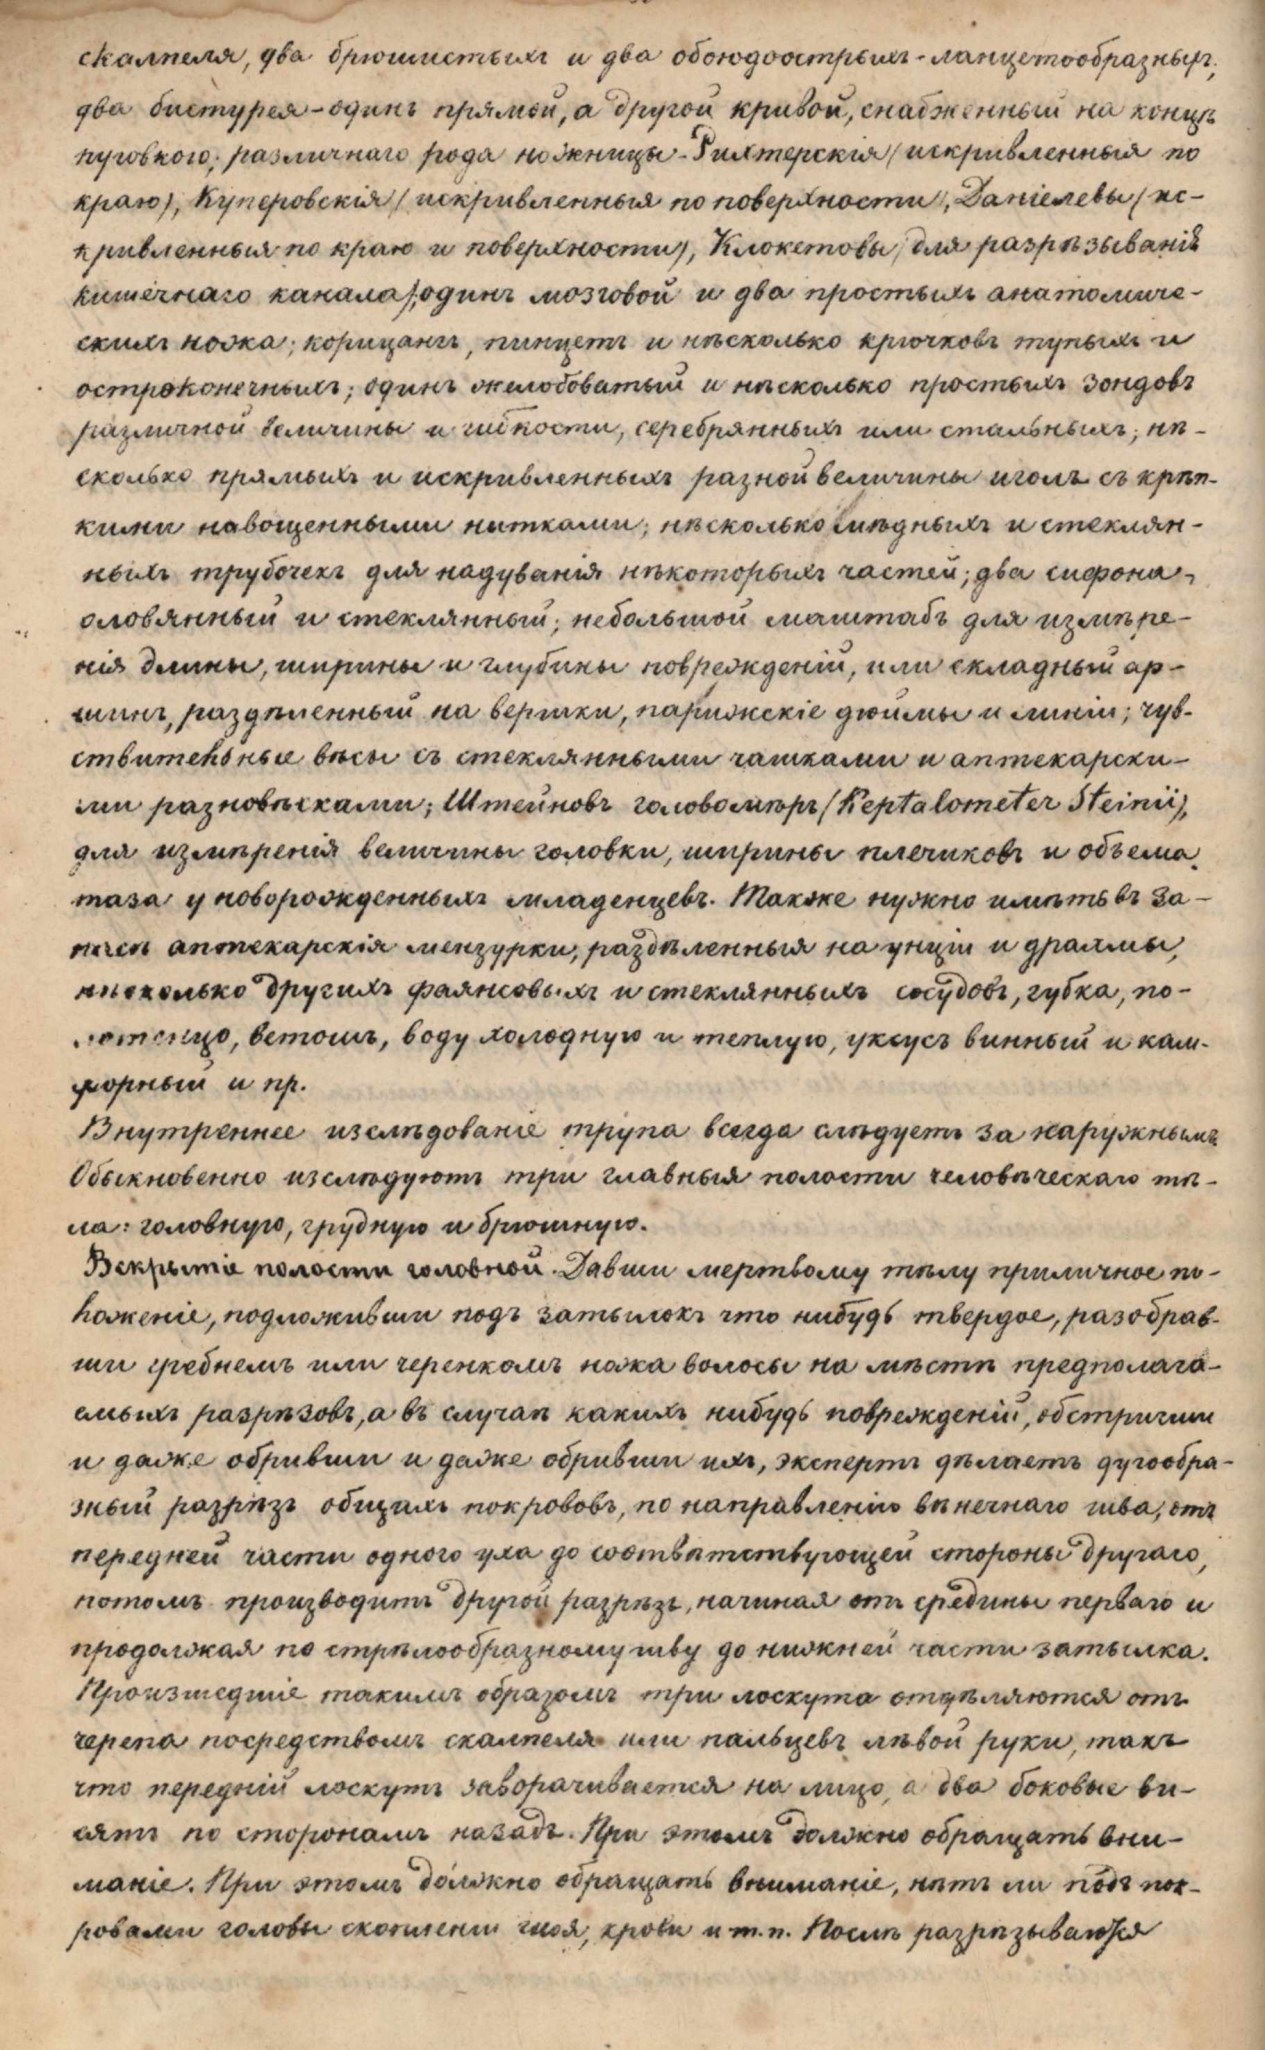 скалпеля, два брюшистыхъ и два обоюдоострыхъ-ланцетообразныхъ;
два бистурея-одинъ прямой, а другой кривой, снабженный на концѣ
пуговкою; различнаго рода ножницы-Рихтерскія (искривленныя по
краю), Куперовскія (искривленныя по поверхности), Даніелевы (ис-
кривленныя по краю и поверхности), Клокетовы (для разрѣзыванія
кишечнаго канала); одинъ мозговой и два простыхъ анатомиче-
скихъ ножа; корнцангъ, пинцетъ и нѣсколько крючковъ тупыхъ и
остроконечныхъ; одинъ желобоватый и нѣсколько простыхъ зондовъ
различной величины и гибкости, серебрянныхъ или стальныхъ; нѣ-
сколько прямыхъ и искривленныхъ разной величины иголъ съ крѣп-
кими навощенными нитками; нѣсколько мѣдныхъ и стеклян-
ныхъ трубочекъ для надуванія нѣкоторыхъ частей; два сифона,
оловянный и стеклянный; небольшой масштабъ для измѣре-
нія длины, ширины и глубины поврежденій, или складный ар-
шинъ, раздѣленный на вершки, парижскіе дюймы и линіи; чув-
ствительные вѣсы съ стеклянными чашками и аптекарски-
ми разновѣсками; Штейновъ головомѣръ (Keptalometer Steinii),
для измѣренія величины головки, ширины плечиковъ и объема
таза у новорожденныхъ младенцевъ. Также нужно имѣть въ за-
пасѣ аптекарскія мензурки, раздѣленныя на унціи и драхмы,
нѣсколько другихъ фаянсовыхъ и стеклянныхъ сосудовъ, губка, по-
лотенцо, ветошь, воду холодную и теплую, уксусъ винный и кам-
форный и пр.
Внутреннее изслѣдованіе трупа всегда слѣдуетъ за наружнымъ
Обыкновенно изслѣдуютъ три главныя полости человѣческаго тѣ-
ла: головную, грудную и брюшную.
Вскрытіе полости головной. Давши мертвому тѣлу приличное по-
ложеніе, подложивши подъ затылокъ что нибудь твердое, разобрав-
ши гребнемъ или черенкомъ ножа волосы на мѣстѣ предполага-
емыхъ разрѣзовъ, а въ случаѣ какихъ нибудь поврежденій, обстригши
и даже обривши и даже обривши ихъ, экспертъ дѣлаетъ дугообра-
зный разрѣзъ общихъ покрововъ, по направленію вѣнечнаго шва, отъ
передней части одного уха до соотвѣтствующей стороны другаго,
потомъ производитъ другой разрѣзъ, начиная отъ средины перваго и
продолжая по стрѣлообразному шву до нижней части затылка.
Произшедшіе такимъ образомъ три лоскута отдѣляются отъ
черепа посредствомъ скалпеля или пальцевъ лѣвой руки, такъ
что передній лоскутъ заворачивается на лицо, а два боковые ви-
сятъ по сторонамъ назадъ. При этомъ должно обращать вни-
маніе. При этомъ должно обращать вниманіе, нѣтъ ли подъ пок-
ровами головы скопленіи гноя, крови и т.п. Послѣ разрѣзываются